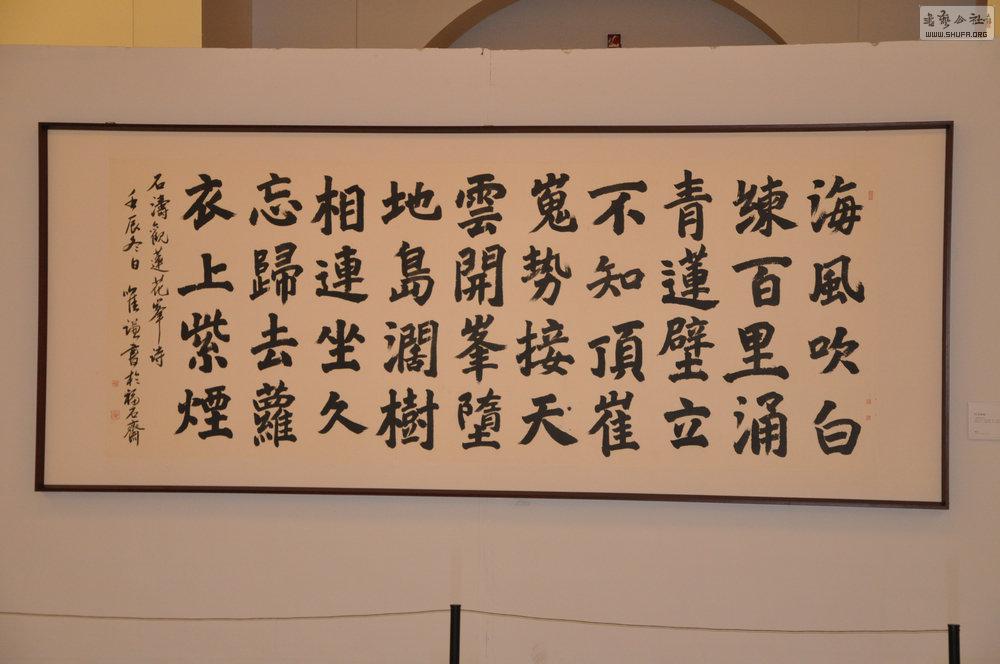 海風吹白
練百里涌
青蓮壁立
不知頂崔
嵬勢接天
雲開峯墮
地島濶樹
相連坐久
忘歸去蘿
衣上紫煙
石濤觀蓮花峯诗
壬辰冬日 崔謹書於福石齋
WWW.SHUFA.ORG